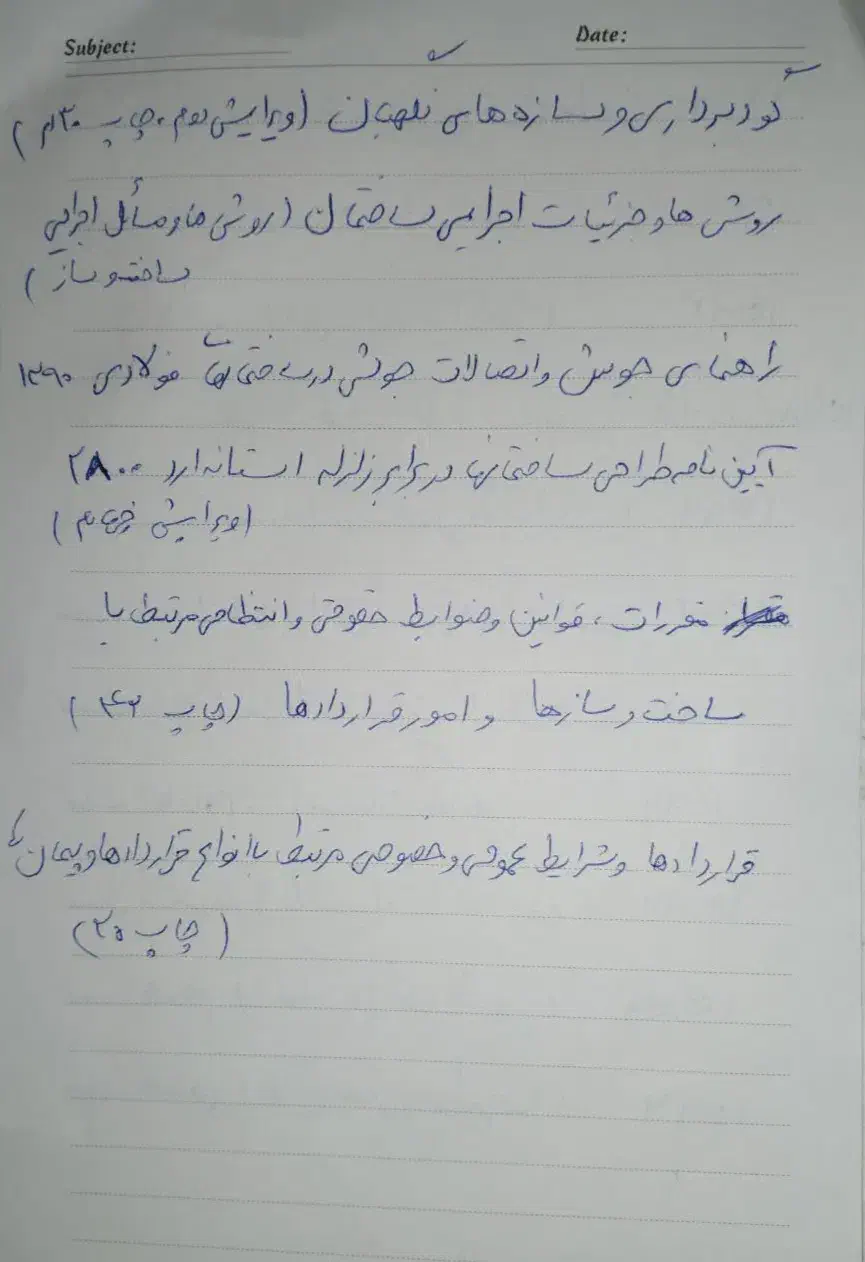 Subject: Date:
گودبرداری و سازه های نگهبان (ویرایش دوم، چاپ ۳۰ام)
روش ها و جزئیات اجرایی ساختمان (روش ها و مسائل اجرایی
ساخت و ساز)
راهنمای جوش و اتصالات جوشی در ساختمانهای فولادی ۱۳۹۰
آیین نامه طراحی ساختمانها در برابر زلزله استاندارد ۲۸۰۰
(ویرایش چهارم)
مقررات، قوانین و ضوابط حقوقی و انتظامی مرتبط با
ساخت و سازها و امور قراردادها (چاپ ۴۲)
قراردادها و شرایط عمومی و خصوصی مرتبط با انواع قراردادها و پیمان ها
(چاپ ۲۵)